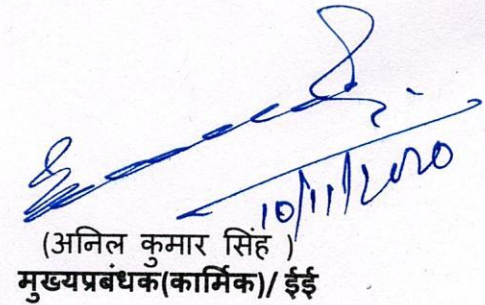 10/11/2020
(अनिल कुमार सिंह )
मुख्यप्रबंधक(कार्मिक)/ ईई